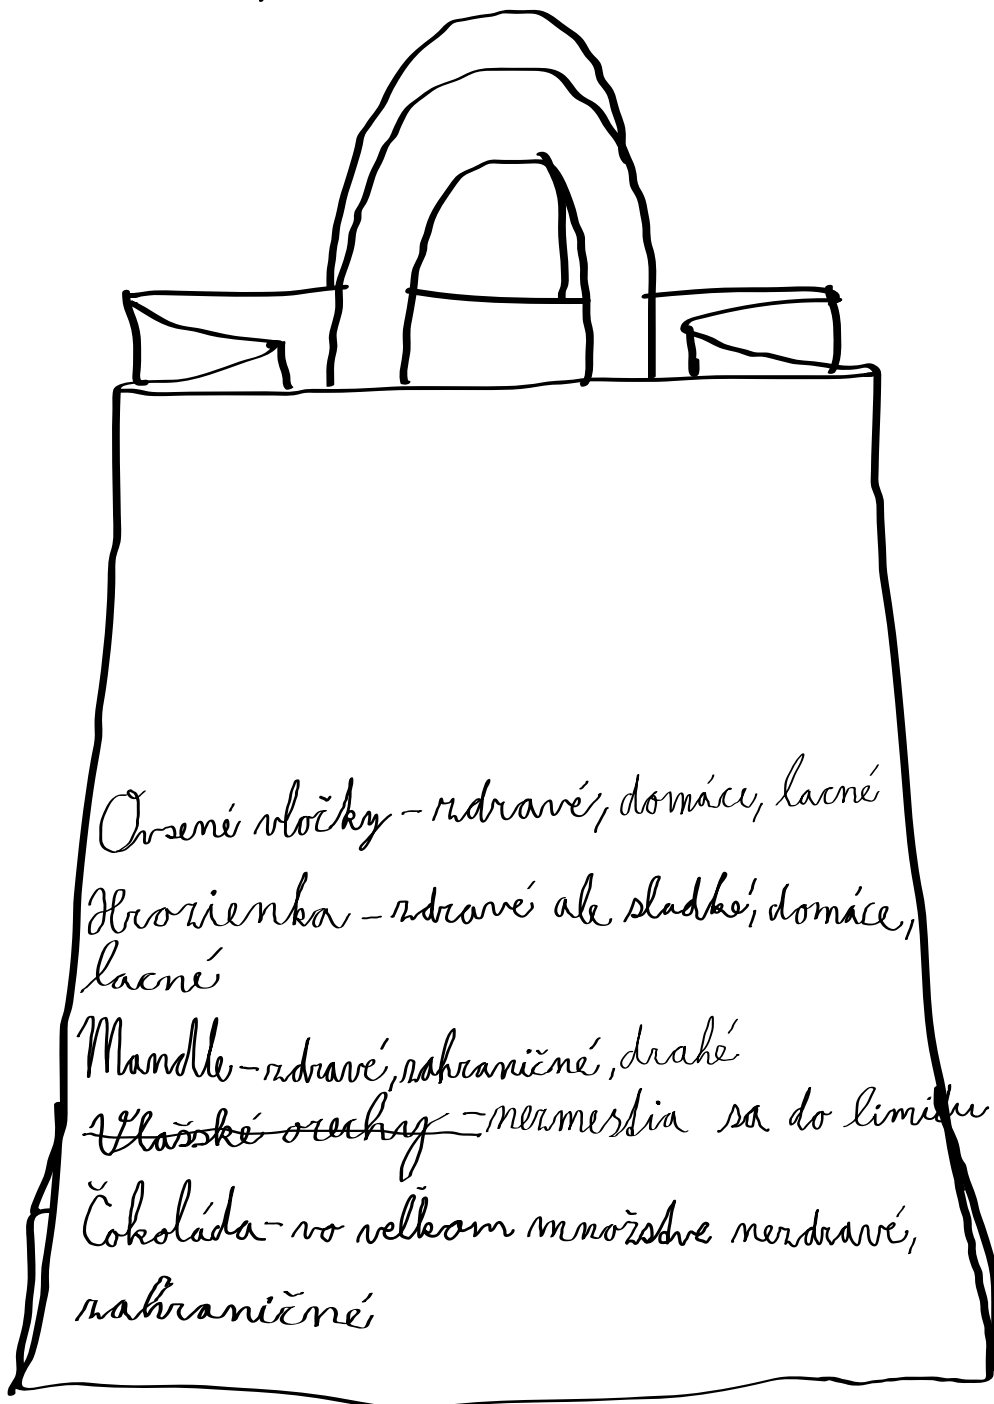 Ovsené vločky – zdravé, domáce, lacné
Hrozienka – zdravé ale sladké, domáce,
lacné
Mandle – zdravé, zahraničné, drahé
Vlašské orechy – nezmestia sa do limitu
Čokoláda – vo veľkom množstve nezdravé,
zahraničné